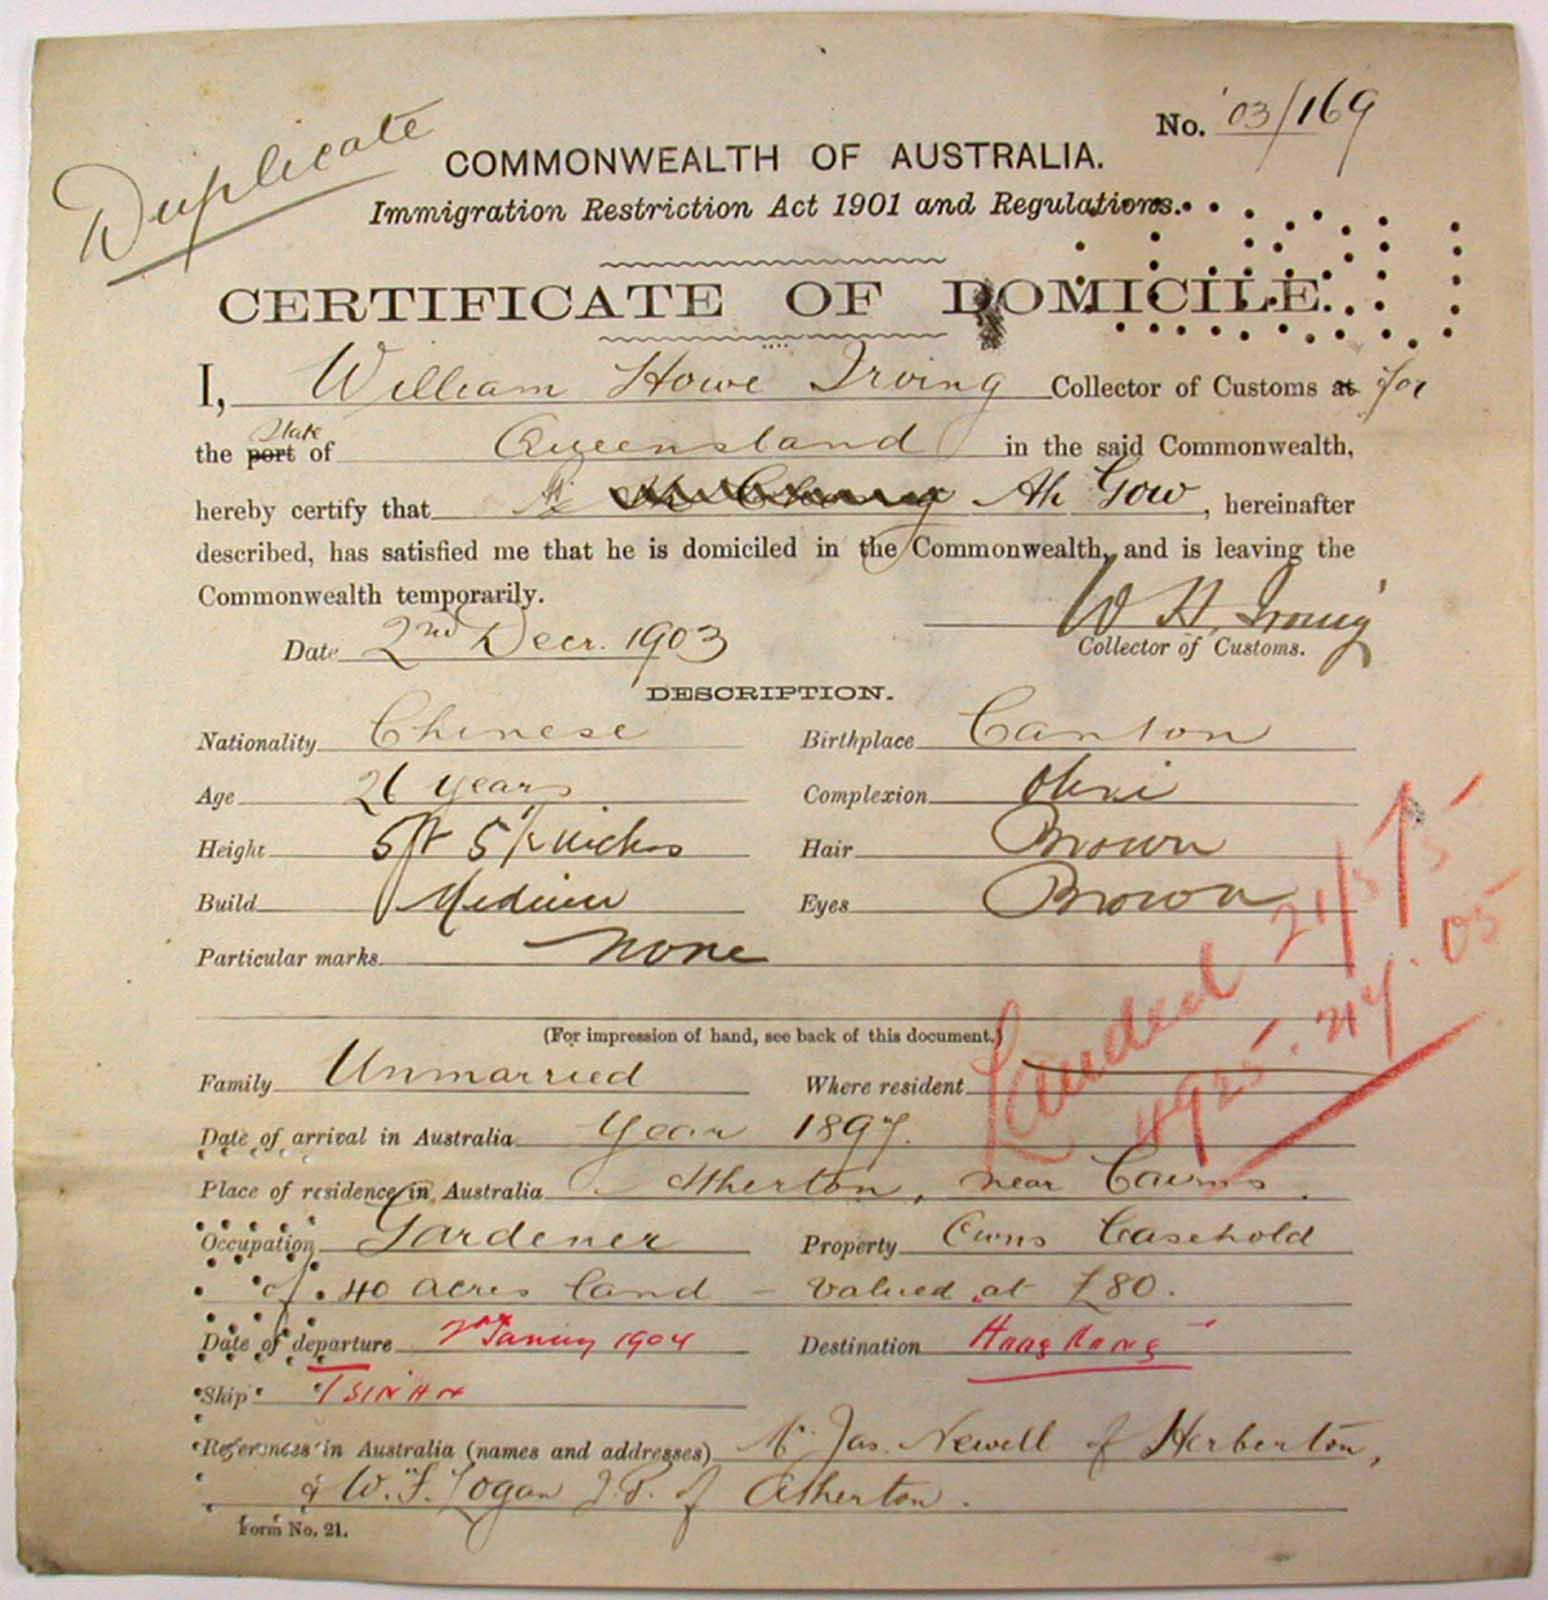 No. 03/169
Duplicate
COMMONWEALTH OF AUSTRALIA.
Immigration Restriction Act 1901 and Regulations.
CERTIFICATE OF DOMICILE.
I, William Howe Irving Collector of Customs at for
the port State of Queensland in the said Commonwealth,
hereby certify that Ah Gow, hereinafter
described, has satisfied me that he is domiciled in the Commonwealth, and is leaving the
Commonwealth temporarily.
W H. Irving
Date 2nd Decr. 1903 Collector of Customs.
DESCRIPTION.
Nationality Chinese Birthplace Canton
Age 26 years Complexion Olive
Height 5ft 5½ inches Hair Brown
Build Medium Eyes Brown
Particular marks none
(For impression of hand, see back of this document.)
Family Unmarried Where resident
Date of arrival in Australia Year 1897.
Place of residence in Australia Atherton, near Cairns.
Occupation Gardener Property Owns leasehold
of 40 acres land - valued at £80.
Date of departure 1904 Destination Hong Kong
Ship TSINAN
References in Australia (names and addresses) Mr Jas. Newell of Herberton,
& W. F. Logan J.P. of Atherton.
Form No. 21.
Landed
05